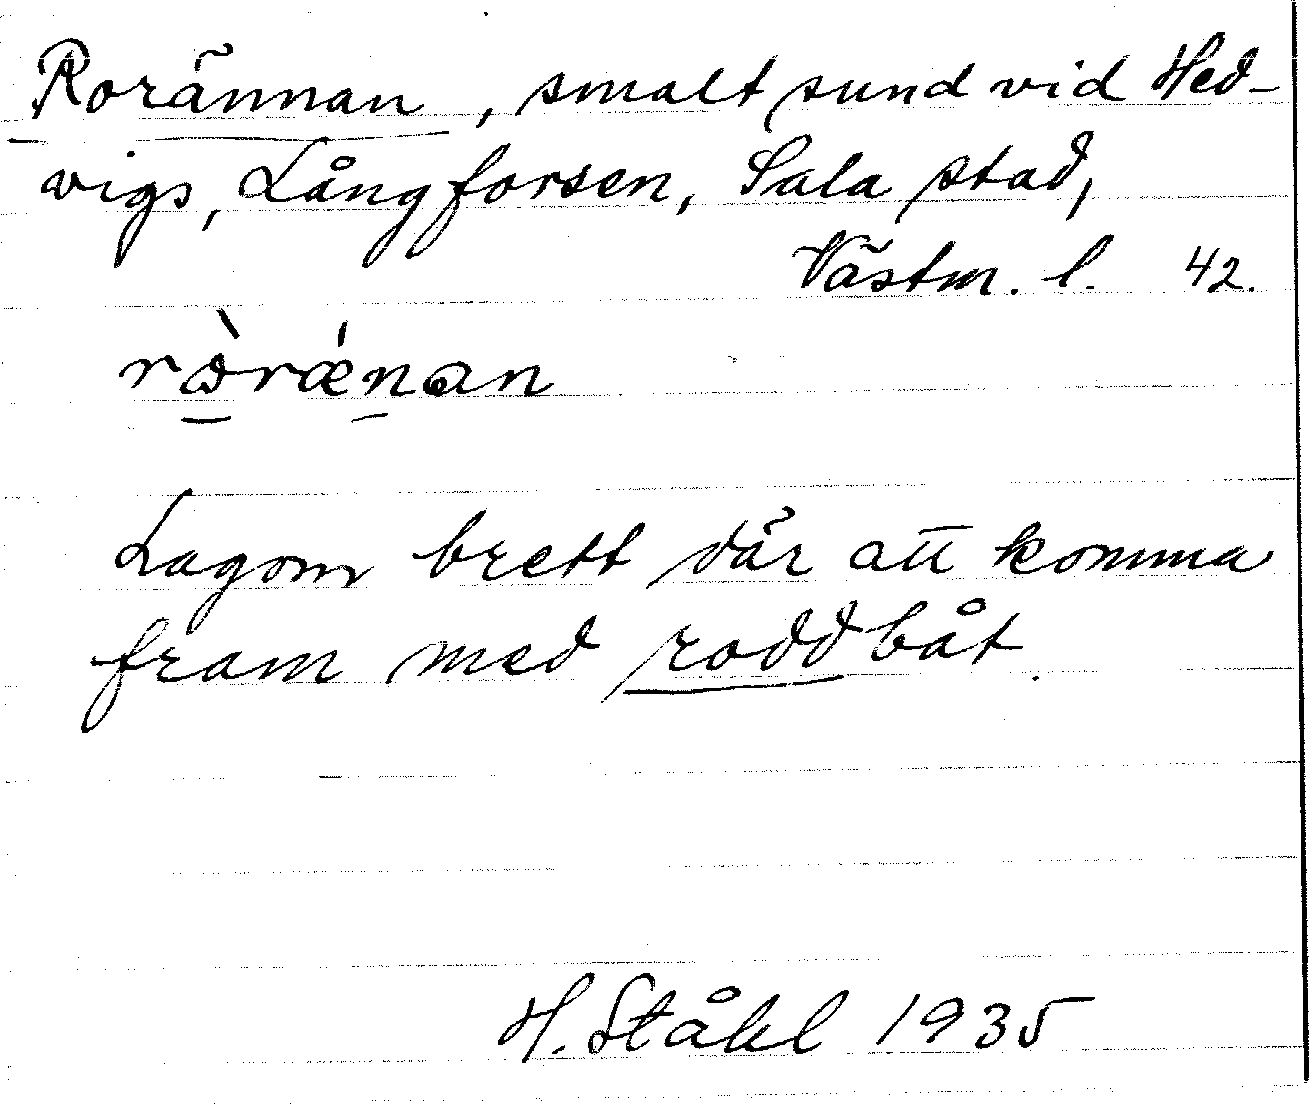 Rorännan, smalt sund vid Hed-
vigs, Långforsen, Sala stad,
Västm. l. 42.
Lagom brett där att komma
fram med roddbåt.
H. Ståhl 1935